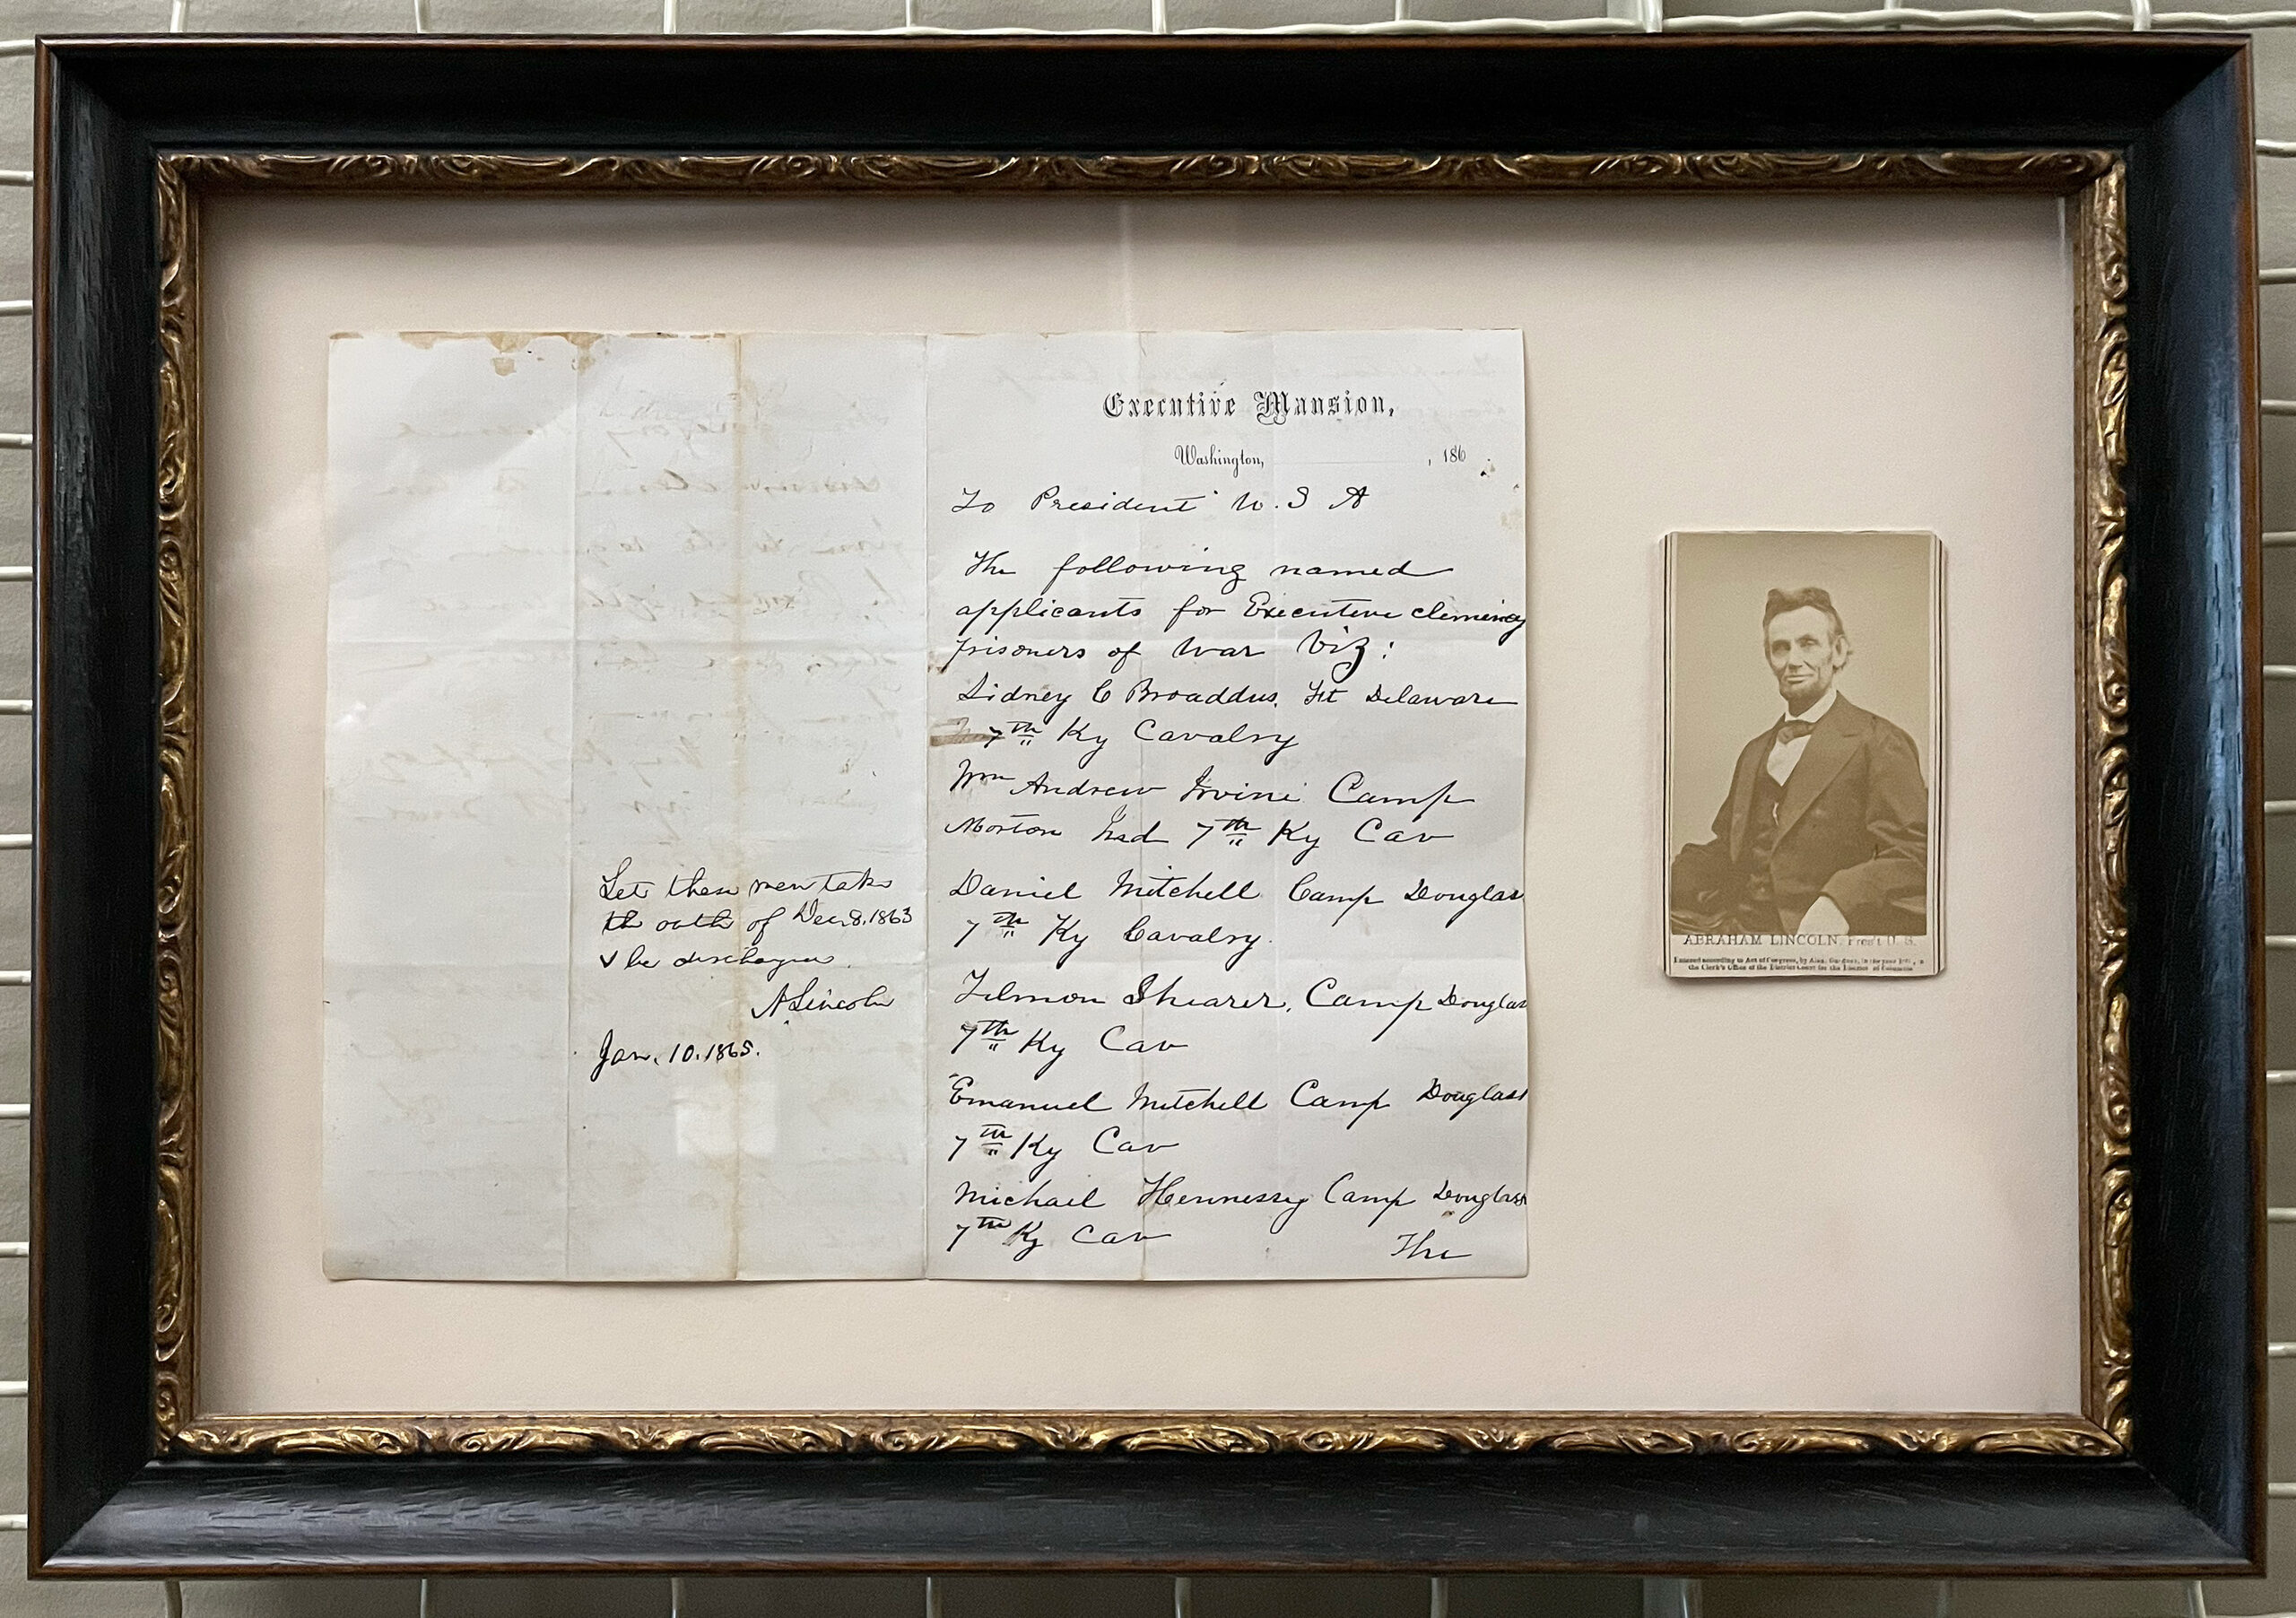 Let these men take
the oath of Dec. 8. 1863
& be discharged.
A. Lincoln
Jan. 10. 1865.
Executive Mansion,
Washington, , 186 .
To President U. S A
The following named
applicants for Executive clemency
prisoners of war viz:
Sidney C Broaddus, Ft Delaware
7th Ky Cavalry
Wm Andrew Irvine Camp
Morton Ind 7th Ky Cav
Daniel Mitchell Camp Douglas
7th Ky Cavalry.
Tilmon Shearer, Camp Douglas
7th Ky Cav
Emanuel Mitchell Camp Douglass
7th Ky Cav
Michael Hennessy Camp Douglass
7th Ky Cav
The
ABRAHAM LINCOLN, Pres't U. S.
Entered according to Act of Congress, by Alex. Gardner, in the year
the Clerk's Office of the District Court for the District of Columbia